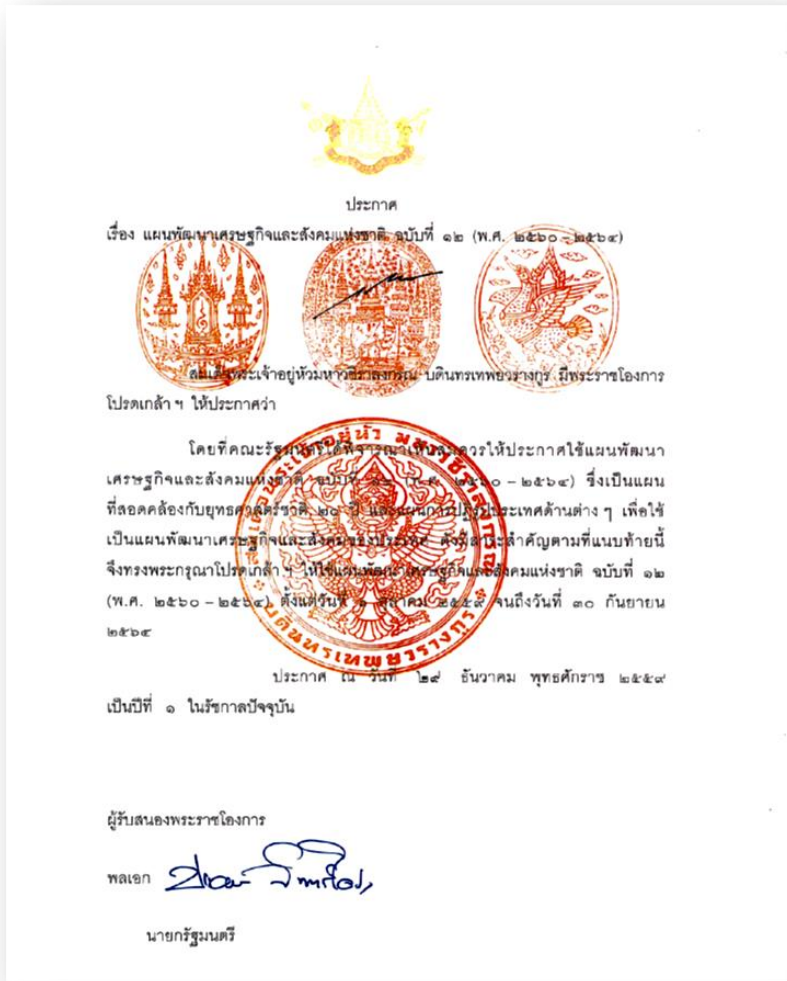 ประกาศ
เรื่อง แผนพัฒนาเศรษฐกิจและสังคมแห่งชาติ ฉบับที่ ๑๒ (พ.ศ. ๒๕๖๐ – ๒๕๖๔)
สมเด็จพระเจ้าอยู่หัวมหาวชิราลงกรณ บดินทรเทพยวรางกูร มีพระราชโองการ
โปรดเกล้า ฯ ให้ประกาศว่า
โดยที่คณะรัฐมนตรีได้พิจารณาเห็นสมควรให้ประกาศใช้แผนพัฒนา
เศรษฐกิจและสังคมแห่งชาติ ฉบับที่ ๑๒ (พ.ศ. ๒๕๖๐ – ๒๕๖๔) ซึ่งเป็นแผน
ที่สอดคล้องกับยุทธศาสตร์ชาติ ๒๐ ปี และแผนการปฏิรูปประเทศด้านต่าง ๆ เพื่อใช้
เป็นแผนพัฒนาเศรษฐกิจและสังคมของประเทศ ดังมีสาระสำคัญตามที่แนบท้ายนี้
จึงทรงพระกรุณาโปรดเกล้า ฯ ให้ใช้แผนพัฒนาเศรษฐกิจและสังคมแห่งชาติ ฉบับที่ ๑๒
(พ.ศ. ๒๕๖๐ – ๒๕๖๔) ตั้งแต่วันที่ ๑ ตุลาคม ๒๕๕๙ จนถึงวันที่ ๓๐ กันยายน
๒๕๖๔
สมเด็จพระเจ้าอยู่หัว มหาวชิราลงกรณ
บดินทรเทพยวรางกูร
ประกาศ ณ วันที่ ๒๙ ธันวาคม พุทธศักราช ๒๕๕๙
เป็นปีที่ ๑ ในรัชกาลปัจจุบัน
ผู้รับสนองพระราชโองการ
พลเอก
นายกรัฐมนตรี